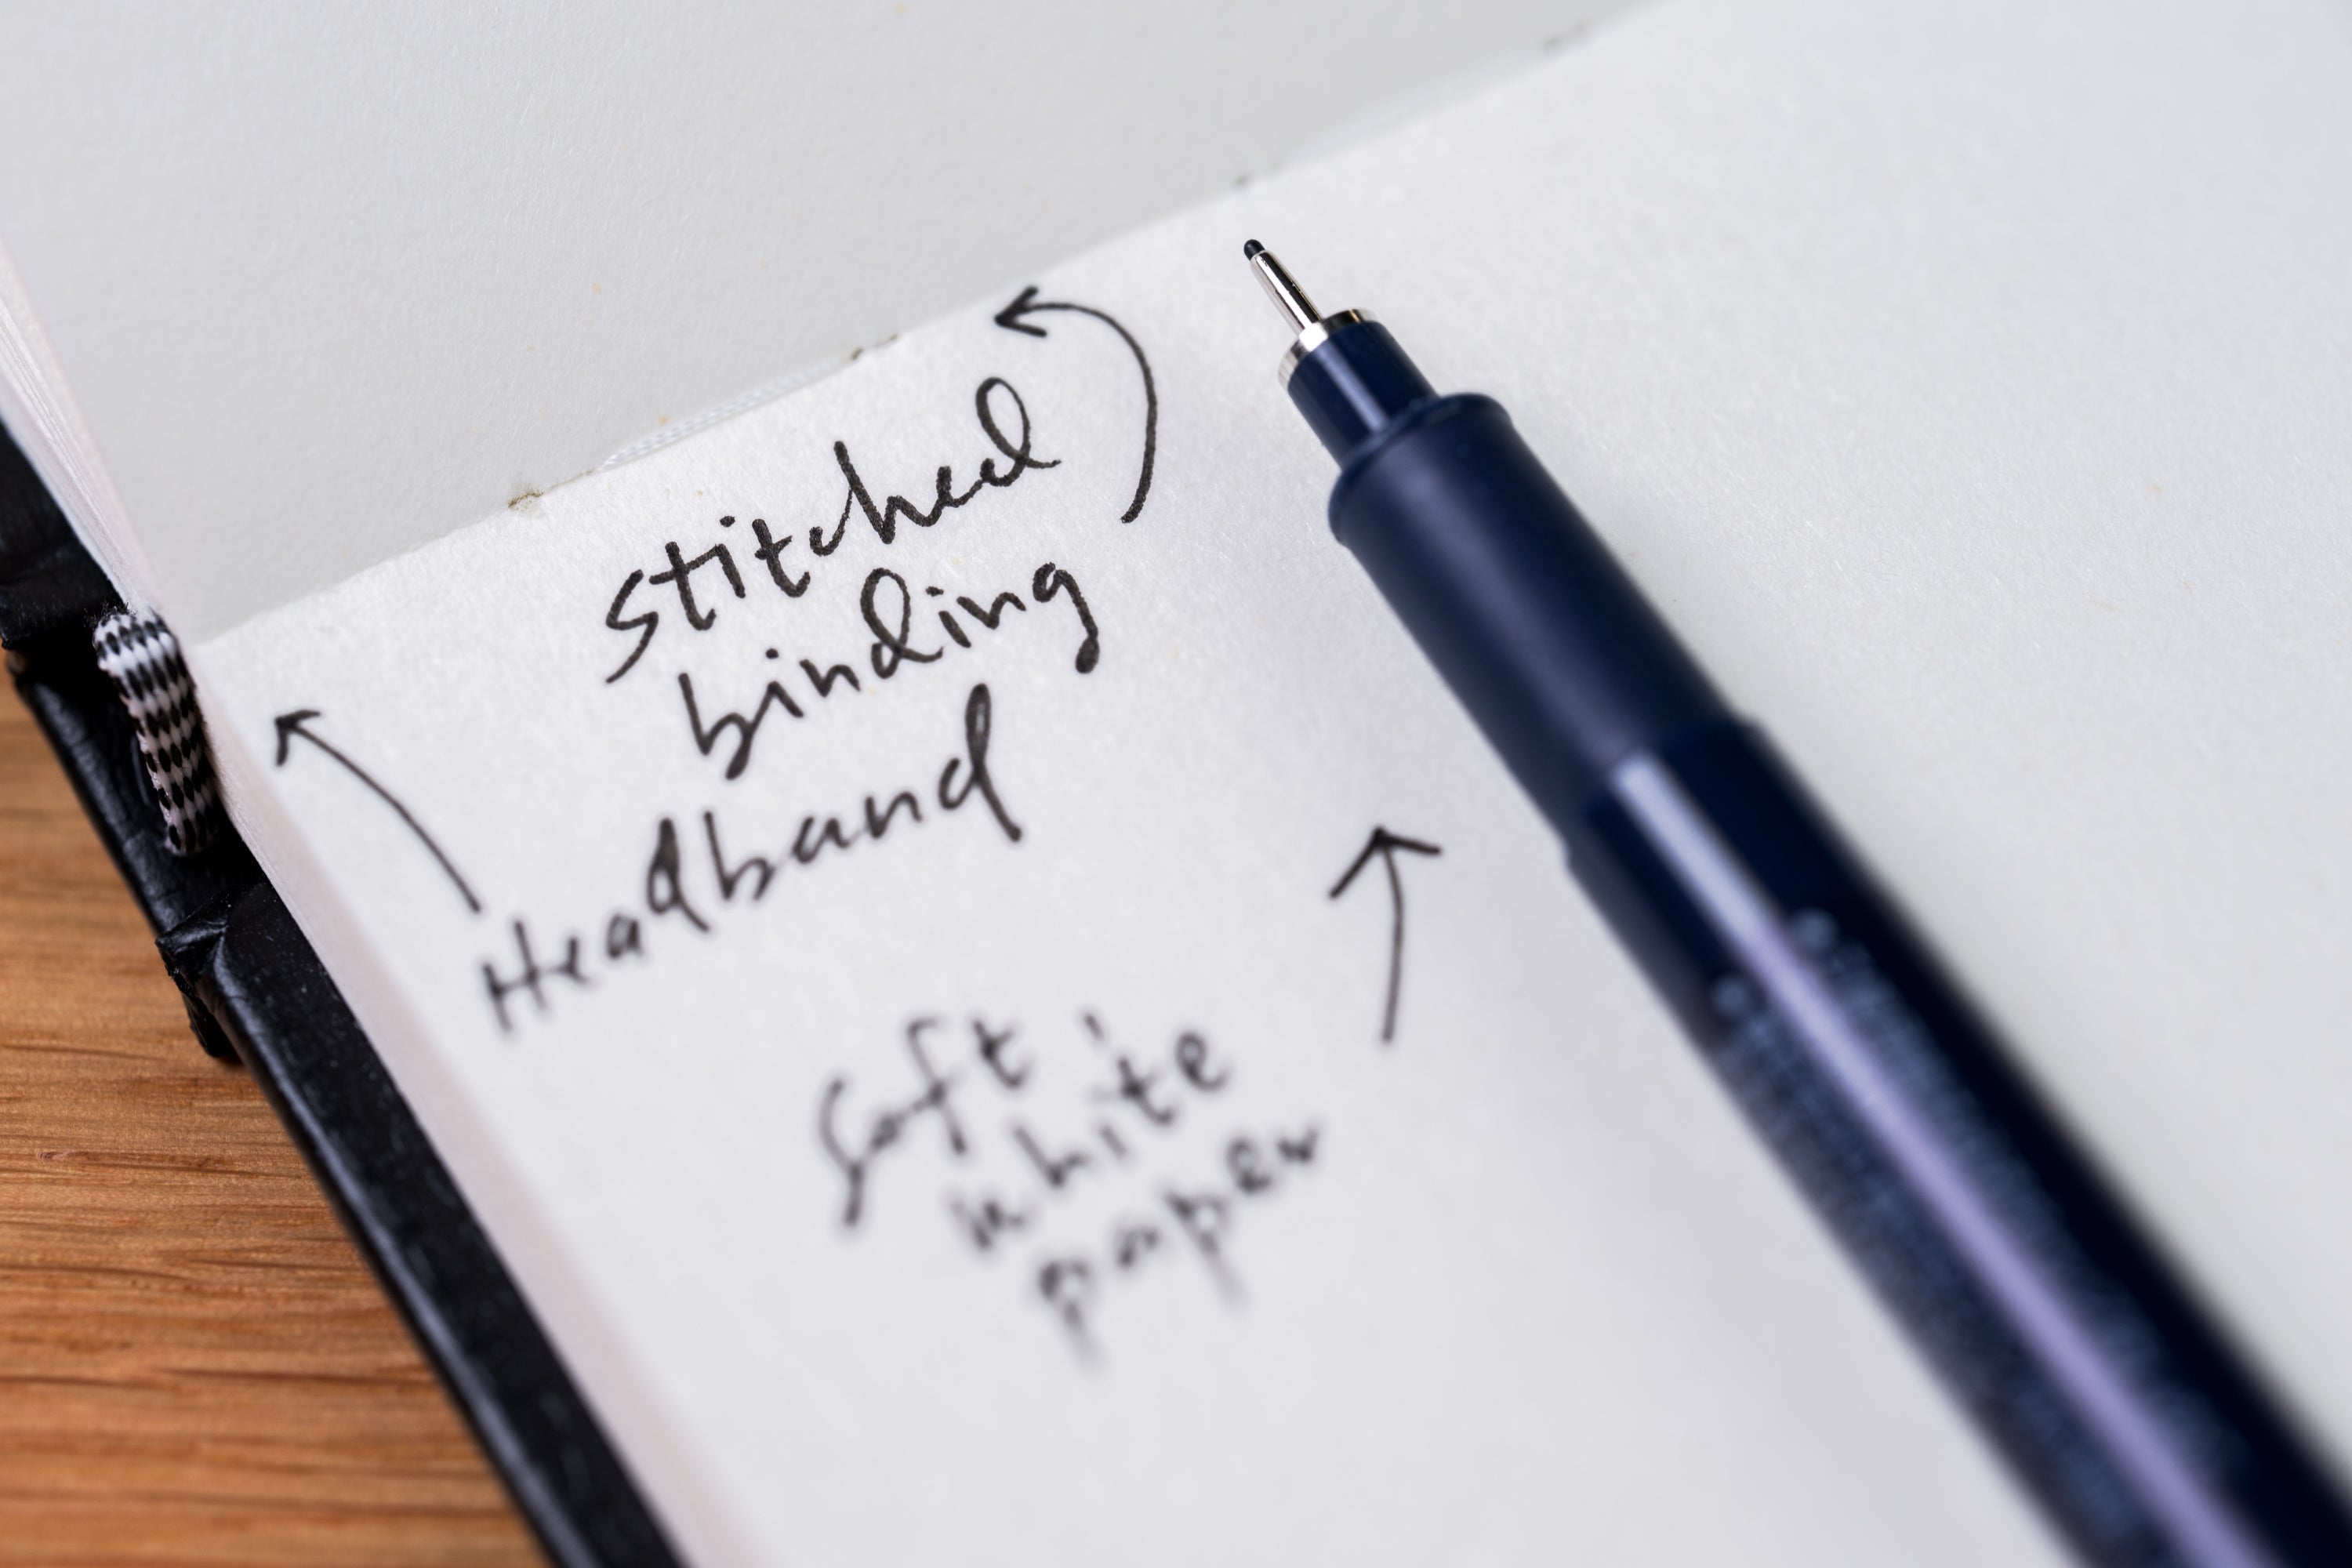 stitched
binding
Headband
Soft
white
paper